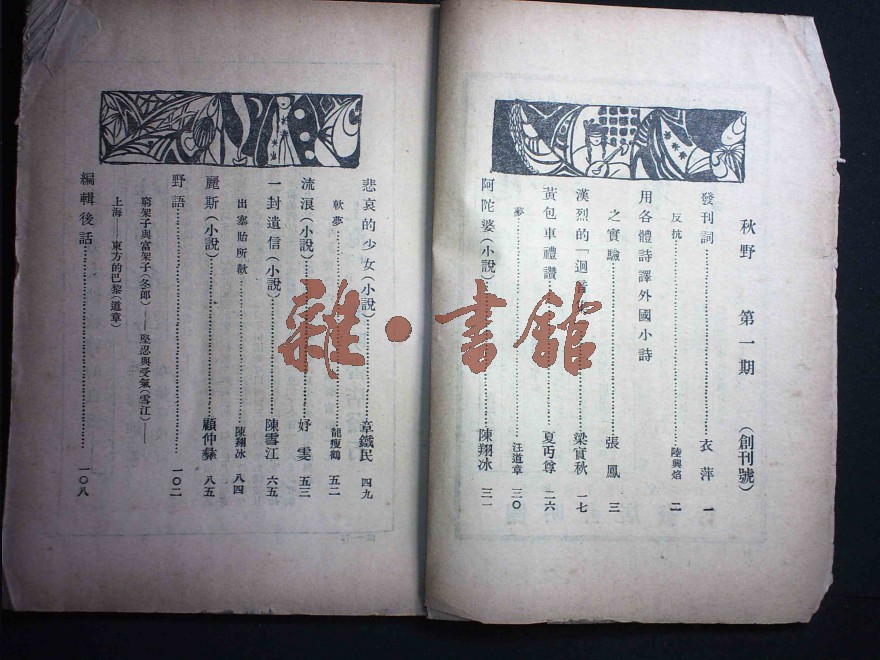 秋野　第一期　（創刊號）
發刊詞……衣萍　一
反抗……陸興焰　二
用各體詩譯外國小詩
之實驗……張鳳　三
漢烈的「迴……梁實秋　一七
黃包車禮讚……夏丏尊　二六
夢……汪道章　三〇
阿陀婆（小說）……陳翔冰　三一
悲哀的少女（小說）……章鐵民　四九
軟夢……龍瘦鶴　五二
流浪（小說）……妤雯　五三
一封遺信（小說）……陳雪江　六五
出塞貽所歡……陳翔冰　八四
麗斯（小說）……顧仲彝　八五
野語……一〇二
窮架子與富架子（冬郎）——堅忍與受氣（雪江）——
上海——東方的巴黎（道章）
編輯後話……一〇八
雜·書館